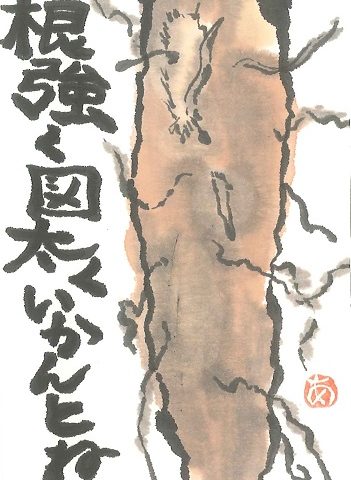 根強く図太くいかんとね
あ